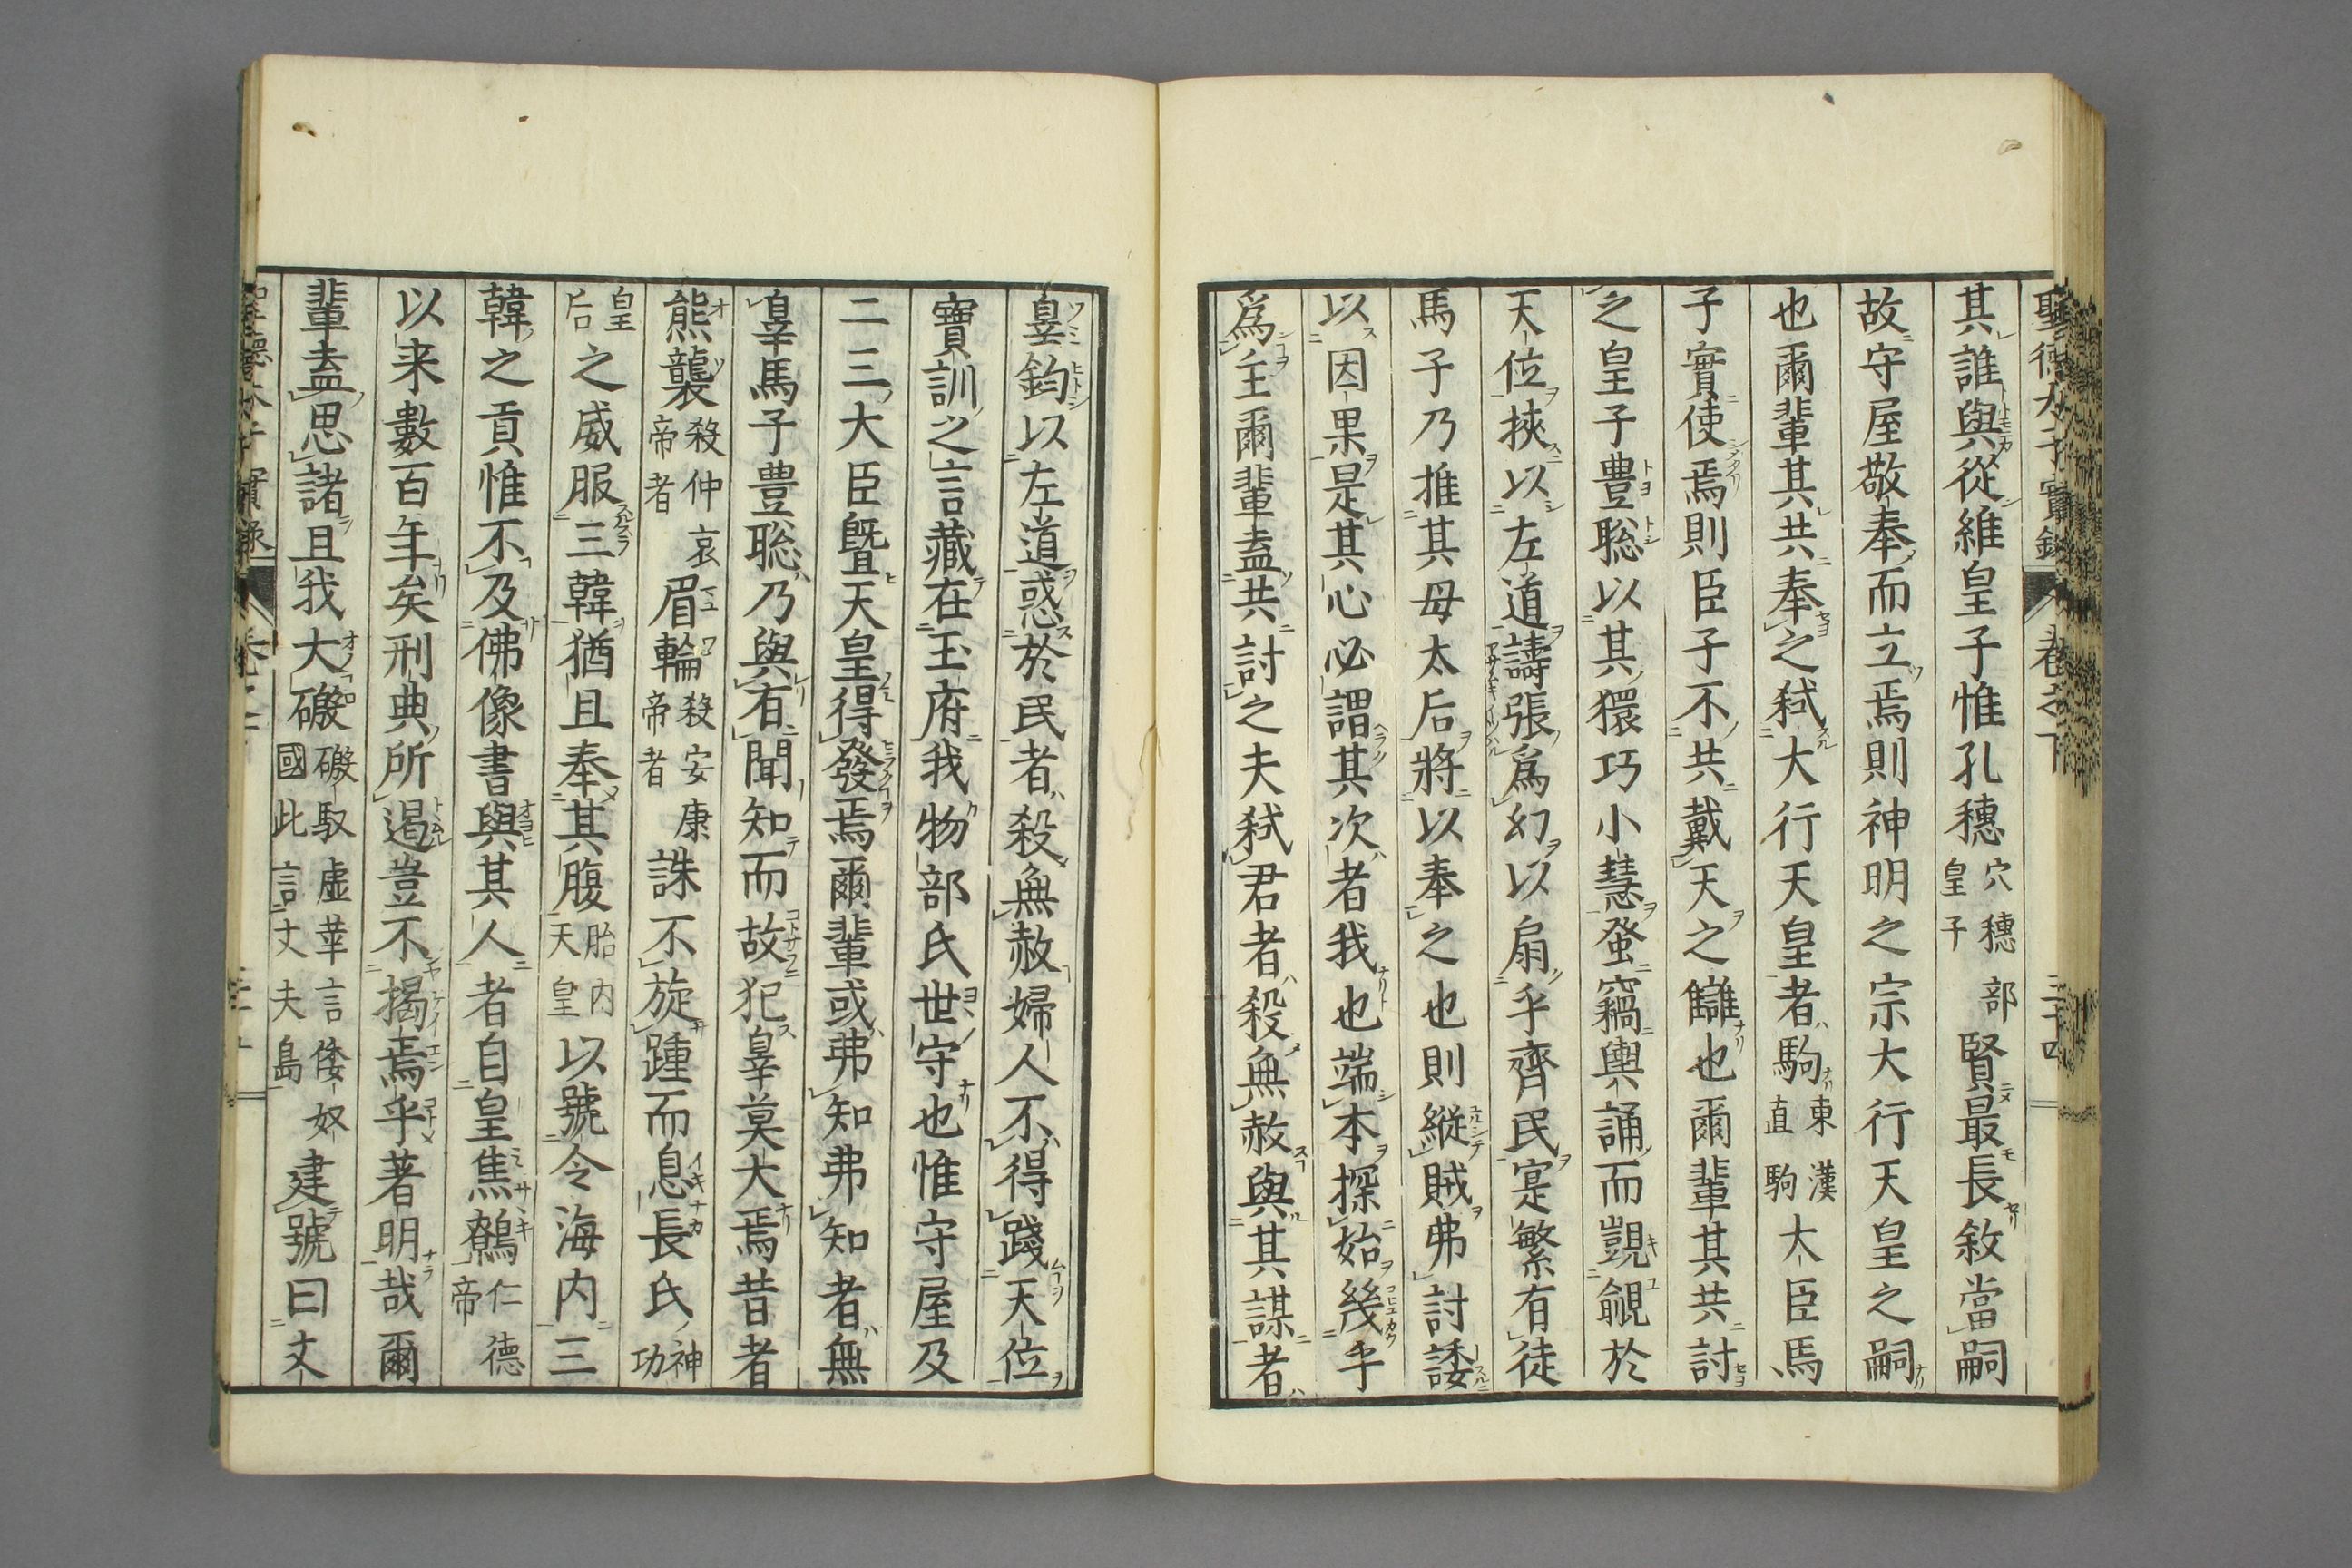 聖德太子實錄 卷之下 三十四
其誰與從維皇子惟孔穗穴穗部皇子賢最長敘當嗣
故守屋敬奉而立焉則神明之宗大行天皇之嗣
也爾輩其共奉之弑大行天皇者駒東漢直駒大臣馬
子實使焉則臣子不共戴天之讎也爾輩其共討
之皇子豊聡以其獧巧小慧蚤竊輿誦而覬覦於
天位挾以左道譸張爲幻以扇乎齊民寔繁有徒
馬子乃推其母太后將以奉之也則縱賊弗討諉
以因果是其心必謂其次者我也端本探始幾乎
爲主爾輩盍共討之夫弑君者殺無赦與其謀者
辠鈞以左道惑於民者殺無赦婦人不得踐天位
寶訓之言藏在玉府我物部氏世守也惟守屋及
二三大臣曁天皇得發焉爾輩或弗知弗知者無
辠馬子豊聡乃與有聞知而故犯辠莫大焉昔者
熊襲殺仲哀帝者眉輪殺安康帝者誅不旋踵而息長氏神功
皇后之威服三韓猶且奉其腹胎内天皇以號令海内三
韓之貢惟不及佛像書與其人者自皇焦鷯仁德帝
以来數百年矣刑典所遏豈不揭焉乎著明哉爾
輩盍思諸且我大磤磤馭盧國此言丈夫島建號曰丈